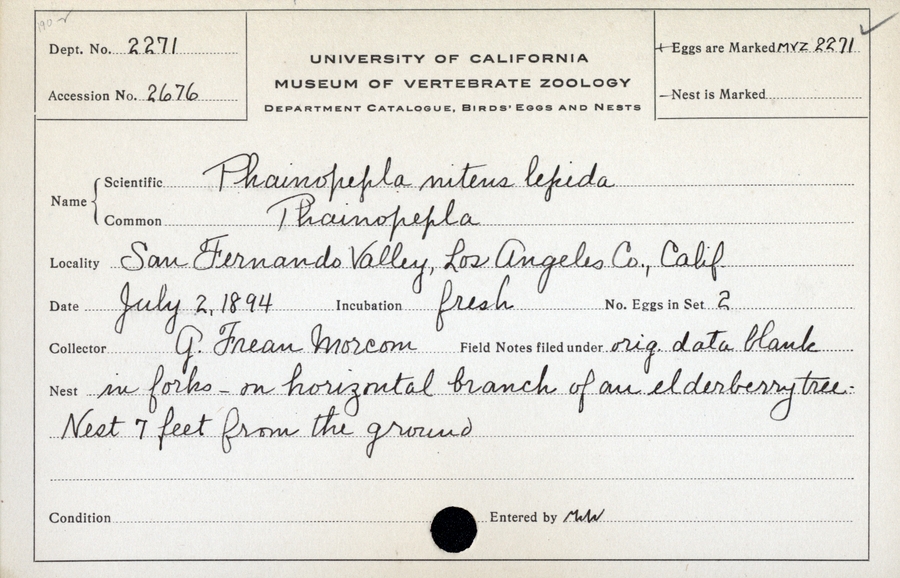 Dept. No. 2271
Accession No. 2676
UNIVERSITY OF CALIFORNIA
MUSEUM OF VERTEBRATE ZOOLOGY
DEPARTMENT CATALOGUE, BIRDS' EGGS AND NESTS
Eggs are Marked MVZ 2271
Nest is Marked
Name
Scientific Phainopepla nitens lepida
Common Phainopepla
Locality San Fernando Valley, Los Angeles Co., Calif
Date July 2, 1894 Incubation fresh No. Eggs in Set 2
Collector G. Frean Morcom Field Notes filed under orig. data blank
Nest in forks - on horizontal branch of an elderberry tree.
Nest 7 feet from the ground
Condition Entered by